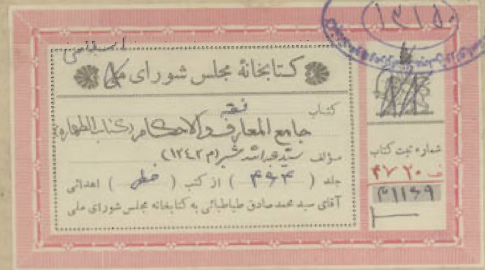 اسلامی
کتابخانهٔ مجلس شورای ملی
کتاب فقه
جامع المعارف والاحکام (کتاب الطهاره)
مؤلف سید عبدالله شبر (م ۱۲۴۲)
جلد ( ۴۹۴ ) از کتب ( خطی ) اهدائی
آقای سید محمدصادق طباطبائی به کتابخانه مجلس شورای ملی
۱۳۱۵۰
شماره ثبت کتاب
ف ۴۷۲۰
۴۱۱۶۹